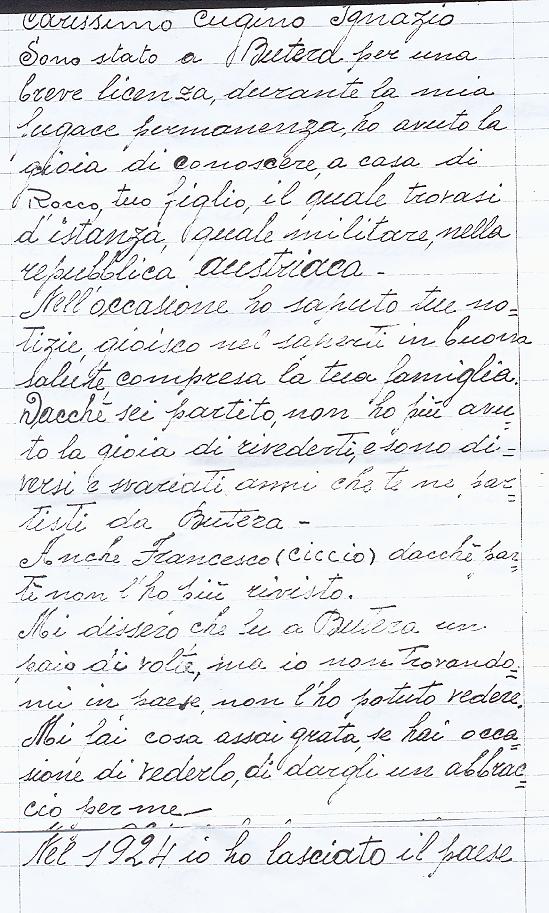 Carissimo Cugino Ignazio
Sono stato a Butera per una
breve licenza, durante la mia
fugace permanenza, ho avuto la
gioia di conoscere, a casa di
Rocco, tuo figlio, il quale trovasi
d'istanza, quale militare, nella
repubblica austriaca -
Nell'occasione ho saputo tue no=
tizie, gioisco nel saperti in buona
salute, compresa la tua famiglia.
Dacché sei partito, non ho più avu=
to la gioia di rivederti, e sono di=
versi e svariati anni che te ne par=
tisti da Butera -
Anche Francesco (ciccio) dacchè par=
tè non l'ho più rivisto.
Mi dissero che fu a Butera un
paio di volte, ma io non trovando=
mi in paese, non l'ho potuto vedere.
Mi fai cosa assai grata, se hai occa=
sione di vederlo, di dargli un abbrac=
cio per me -
Nel 1924 io ho lasciato il paese